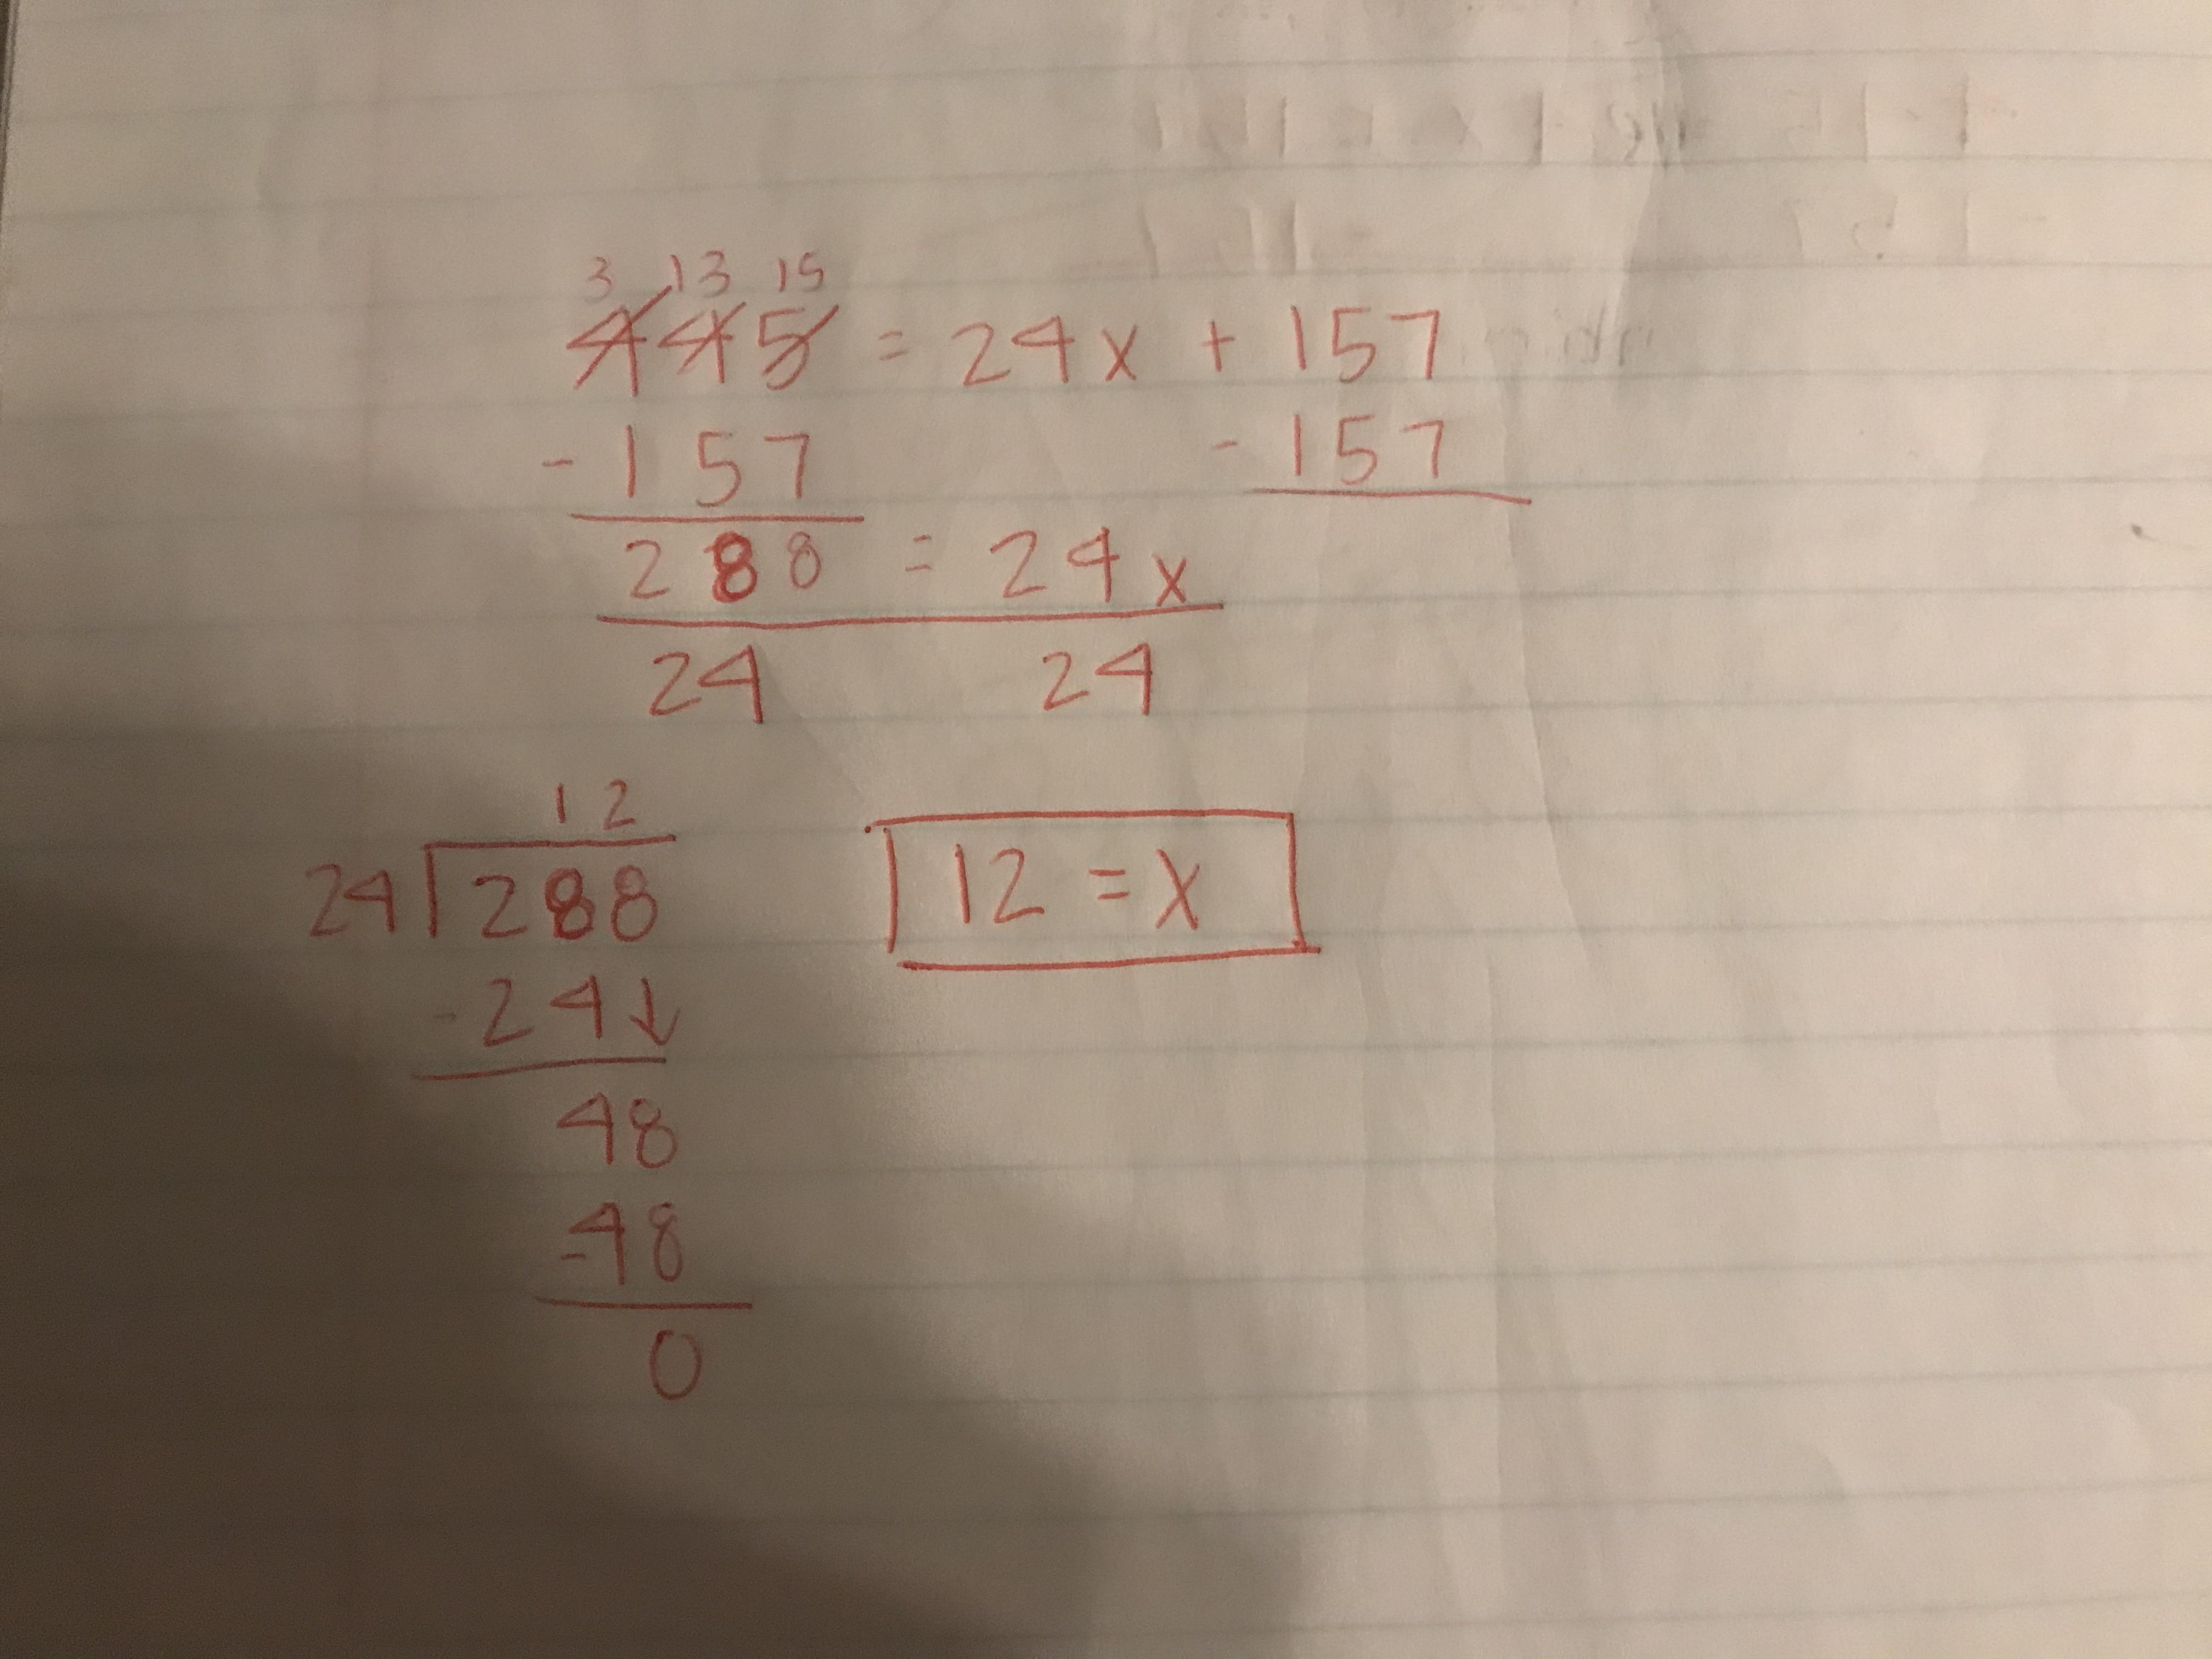 3 13 15
445 = 24x + 157
- 157 - 157
288 = 24x
24 24
12
24 288
- 24↓
48
- 48
0
12 = x